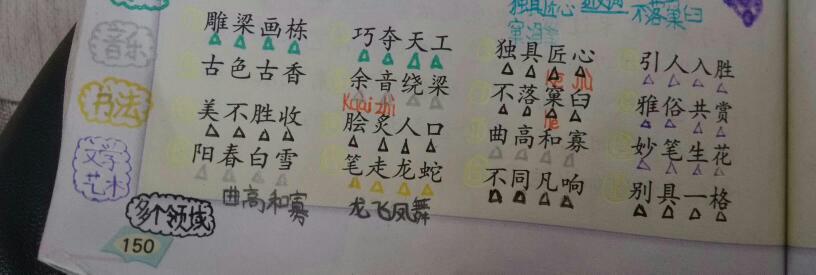 独具匠心
不落窠臼
音乐
书法
文学
艺术
多个领域
雕梁画栋 巧夺天工 独具匠心 引人入胜
古色古香 余音绕梁 不落窠臼 雅俗共赏
kē jiù
Kuai zhì
美不胜收 脍炙人口 曲高和寡 妙笔生花
阳春白雪 笔走龙蛇 不同凡响 别具一格
曲高和寡 龙飞凤舞
150